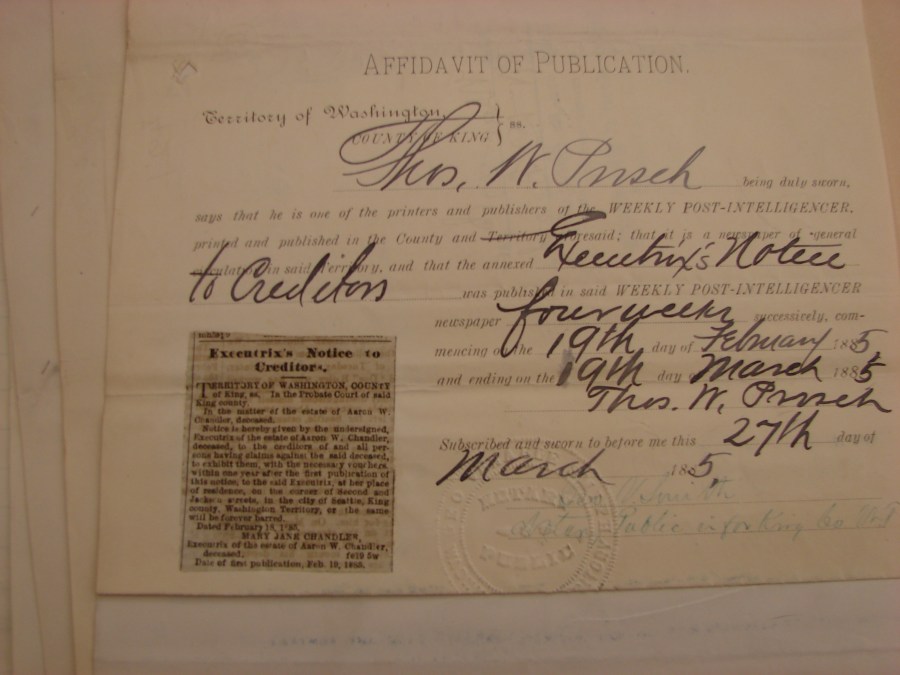 AFFIDAVIT OF PUBLICATION.
Territory of Washington,
COUNTY OF KING } ss.
Thos. W. Prosch being duly sworn,
says that he is one of the printers and publishers of the WEEKLY POST-INTELLIGENCER,
printed and published in the County and Territory aforesaid; that it is a newspaper of general
circulation in said Territory, and that the annexed Executrix's Notice
to Creditors was published in said WEEKLY POST-INTELLIGENCER
newspaper four weeks successively, com-
mencing on the 19th day of February 1885
and ending on the 19th day of March 1885
Thos. W. Prosch
Subscribed and sworn to before me this 27th day of
March 1885
Smith
Notary Public in for King Co W.T
NOTARY
PUBLIC
Executrix's Notice to
Creditors.
TERRITORY OF WASHINGTON, COUNTY
of King, ss. In the Probate Court of said
King county.
In the matter of the estate of Aaron W.
Chandler, deceased.
Notice is hereby given by the undersigned,
Executrix of the estate of Aaron W. Chandler,
deceased, to the creditors of and all per-
sons having claims against the said deceased,
to exhibit them, with the necessary vouchers,
within one year after the first publication of
this notice, to the said Executrix, at her place
of residence, on the corner of Second and
Jackson streets, in the city of Seattle, King
county, Washington Territory, or the same
will be forever barred.
Dated February 18, 1885.
MARY JANE CHANDLER,
Executrix of the estate of Aaron W. Chandler,
deceased. fe19 5w
Date of first publication, Feb. 19, 1885.